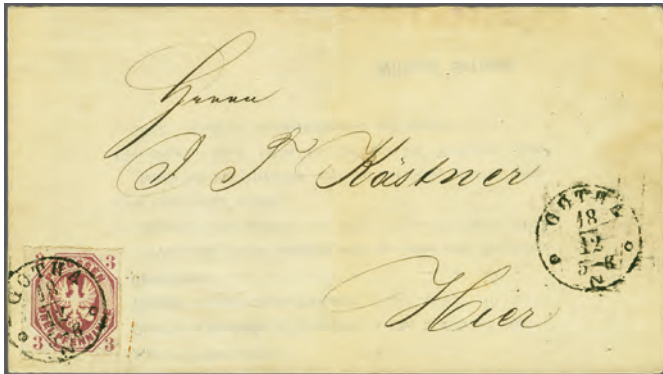 Herrn
J F Kästner
Hier
GOTHA
18
12
5-6 N
3 3
GOTHA
DREI PFENNINGE
3 3